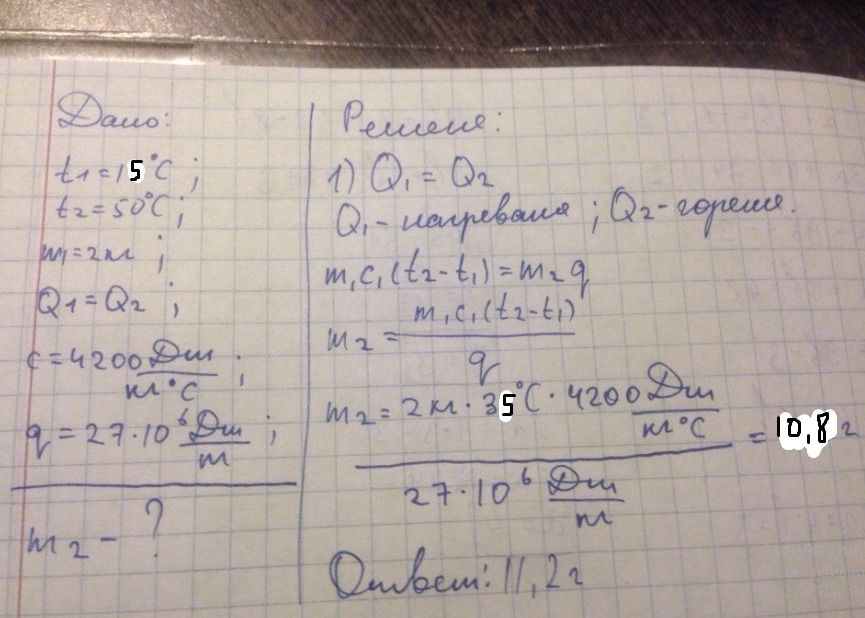 Дано:
t1=15°C ;
t2=50°C ;
m1=2кг ;
Q1=Q2 ;
c=4200 Дж/кг°C ;
q=27·10⁶ Дж/кг ;
m2-?
Решение:
1) Q₁=Q₂
Q₁-нагревания ; Q₂-горения.
m₁c₁(t₂-t₁)=m₂q
m₂= m₁c₁(t₂-t₁)/q
m₂= 2кг·35°C·4200 Дж/кг°C / 27·10⁶ Дж/кг = 10,8г
Ответ: 11,2г